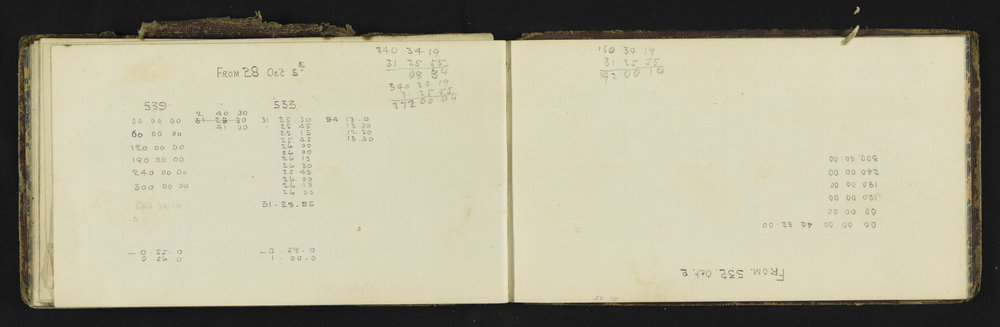 340 34 19
31 25 55
08 34
340 34 19
31 25 55
372 00 04
FROM 28 Oct 5th
539
533
00 00 00
2 40 30
31 29 30
41 00
60 00 00
120 00 00
180 00 00
240 00 00
300 00 00
340 34 19
31 25 30
25 45
25 15
25 45
26 00
26 00
26 15
26 30
25 45
26 00
26 15
26 00
31-25-55
94 13 0
13 30
12 30
13 30
- 0 55 0
0 56 0
- 0 59 0
1 00 0
160 34 19
31 25 55
192 00 14
FROM. 532. Oct. 2
00 00 00 45 22 00
60 00 00
120 00 00
180 00 00
240 00 00
300 00 00